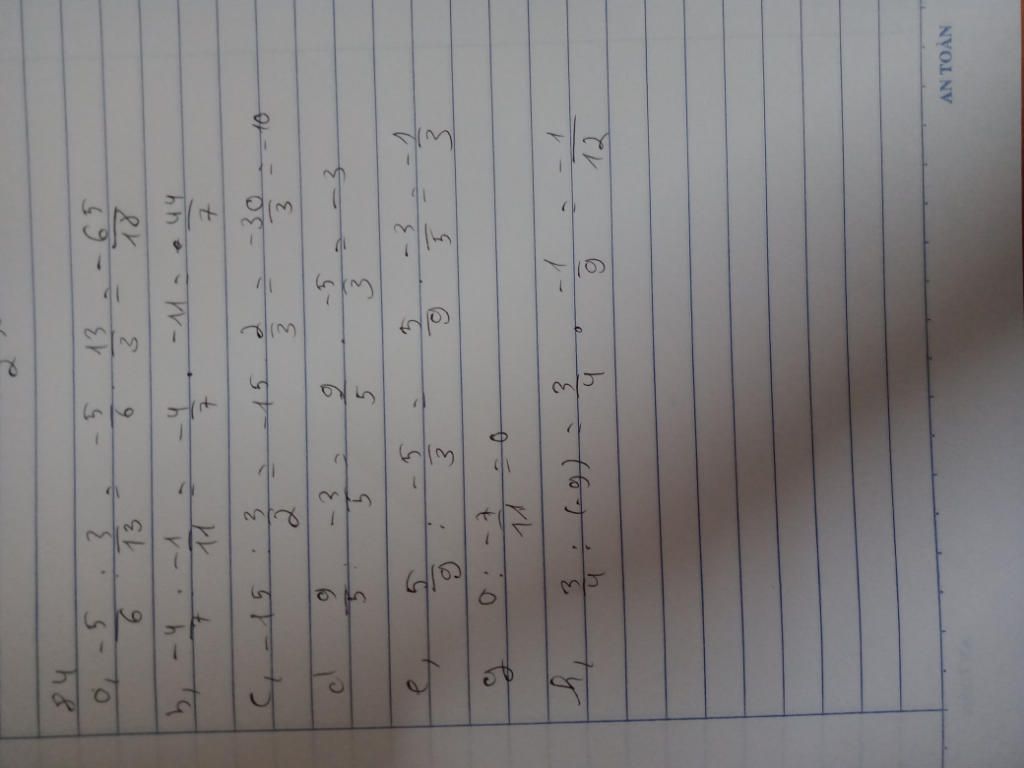 84
a, -5/6 : 3/13 = -5/6 . 13/3 = -65/18
b, -4/7 : -1/11 = -4/7 . -11 = 44/7
c, -15 : 3/2 = -15 2/3 = -30/3 = -10
d 9/5 : -3/5 = 9/5 . -5/3 = -3
e, 5/9 : -5/3 = 5/9 . -3/5 = -1/3
g 0 : -7/11 = 0
h, 3/4 : (-9) = 3/4 . -1/9 = -1/12
AN TOÀN